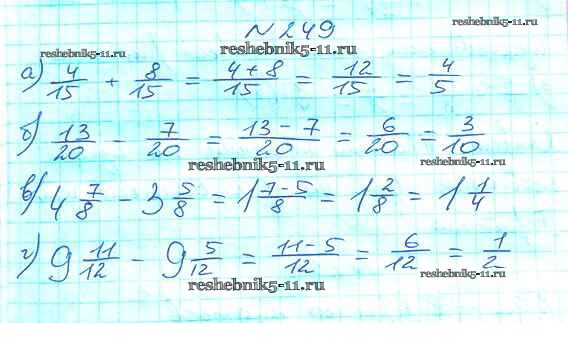 № 249
reshebnik5-11.ru
reshebnik5-11.ru
reshebnik5-11.ru
а) 4/15 + 8/15 = (4+8)/15 = 12/15 = 4/5
б) 13/20 - 7/20 = (13-7)/20 = 6/20 = 3/10
reshebnik5-11.ru
reshebnik5-11.ru
в) 4 7/8 - 3 5/8 = 1 (7-5)/8 = 1 2/8 = 1 1/4
г) 9 11/12 - 9 5/12 = (11-5)/12 = 6/12 = 1/2
reshebnik5-11.ru
reshebnik5-11.ru